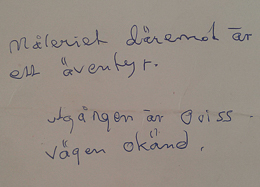 Måleriet däremot är
ett äventyr.
utgången är oviss
vägen okänd.